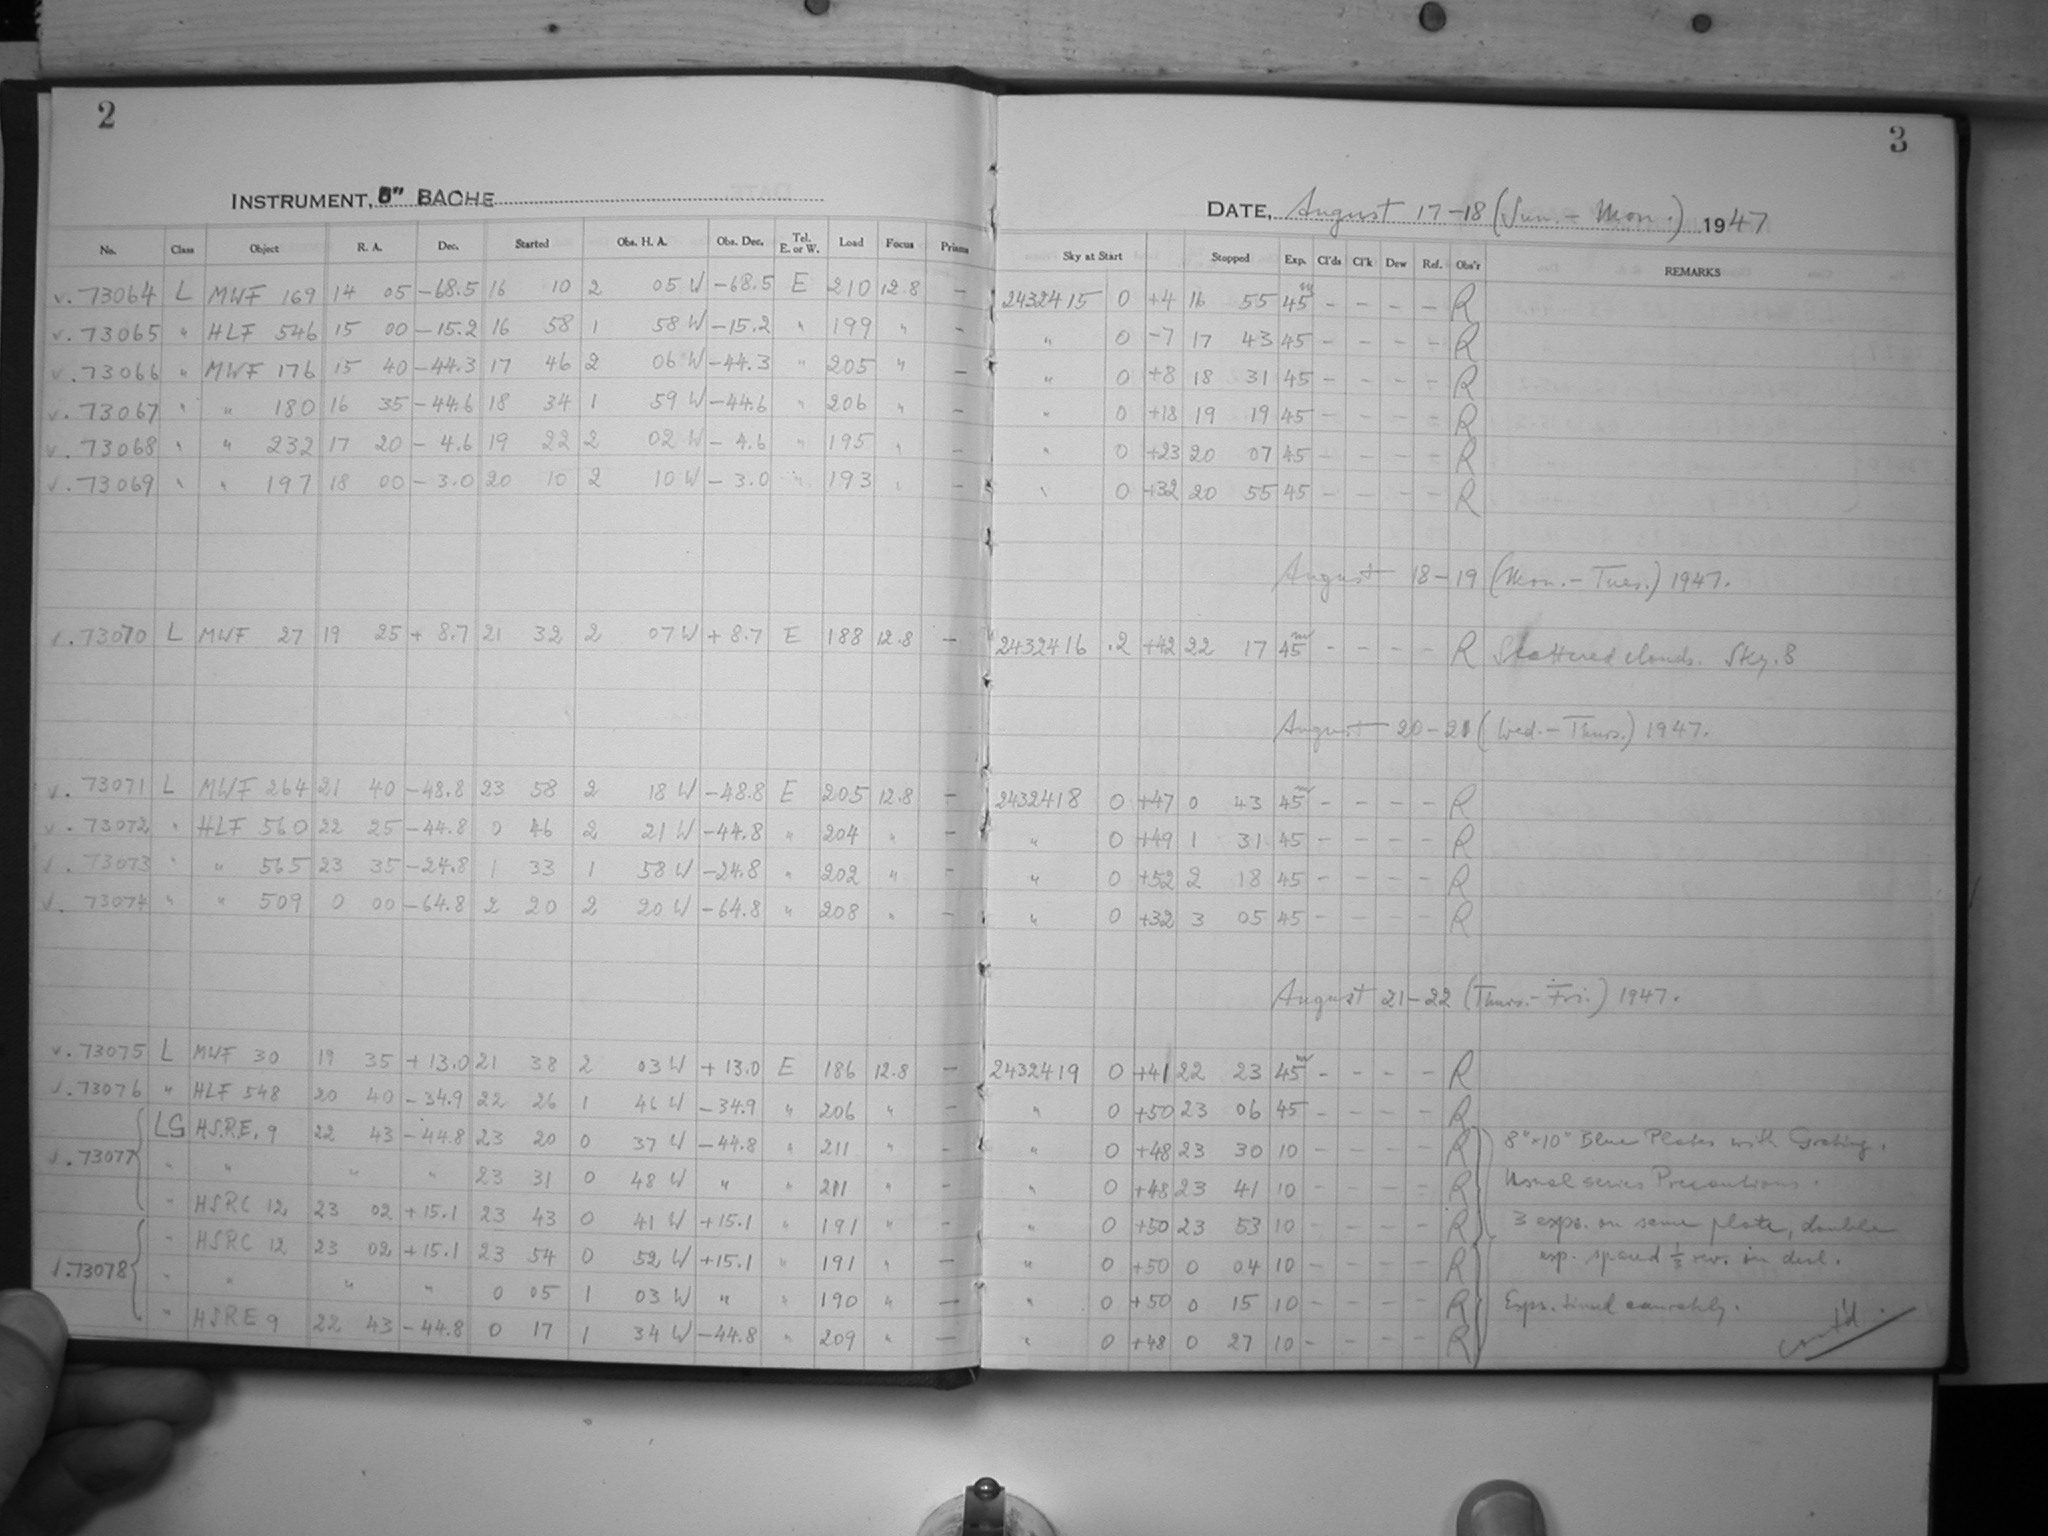 2
INSTRUMENT, 8" BACHE
No. Class Object R. A. Dec. Started Obs. H. A. Obs. Dec. Tel. E. or W. Load Focus Prisms
v. 73064 L MWF 169 14 05 -68.5 16 10 2 05 W -68.5 E 210 12.8 –
v. 73065 " HLF 546 15 00 -15.2 16 58 1 58 W -15.2 " 199 " –
v. 73066 " MWF 176 15 40 -44.3 17 46 2 06 W -44.3 " 205 " –
v. 73067 " " 180 16 35 -44.6 18 34 1 59 W -44.6 " 206 " –
v. 73068 " " 232 17 20 -4.6 19 22 2 02 W -4.6 " 195 " –
v. 73069 " " 197 18 00 -3.0 20 10 2 10 W -3.0 " 193 " –
v. 73070 L MWF 27 19 25 +8.7 21 32 2 07 W +8.7 E 188 12.8 –
v. 73071 L MWF 264 21 40 -48.8 23 58 2 18 W -48.8 E 205 12.8 –
v. 73072 " HLF 560 22 25 -44.8 0 46 2 21 W -44.8 " 204 " –
v. 73073 " " 565 23 35 -24.8 1 33 1 58 W -24.8 " 202 " –
v. 73074 " " 509 0 00 -64.8 2 20 2 20 W -64.8 " 208 " –
v. 73075 L MWF 30 19 35 +13.0 21 38 2 03 W +13.0 E 186 12.8 –
v. 73076 " HLF 548 20 40 -34.9 22 26 1 46 W -34.9 " 206 " –
LG H.S.R.E. 9 22 43 -44.8 23 20 0 37 W -44.8 " 211 " –
v. 73077 " " " " 23 31 0 48 W " " 211 " –
" HSRC 12 23 02 +15.1 23 43 0 41 W +15.1 " 191 " –
" HSRC 12 23 02 +15.1 23 54 0 52 W +15.1 " 191 " –
v. 73078 " " " " 0 05 1 03 W " " 190 " –
" HSRE 9 22 43 -44.8 0 17 1 34 W -44.8 " 209 " –
3
DATE, August 17-18 (Sun. - Mon.) 1947
Sky at Start Stopped Exp. Cl'ds Cl'k Dew Ref. Obs'r REMARKS
2432415 0 +4 16 55 45m – – – – R
" 0 -7 17 43 45 – – – – R
" 0 +8 18 31 45 – – – – R
" 0 +18 19 19 45 – – – – R
" 0 +23 20 07 45 – – – – R
" 0 +32 20 55 45 – – – – R
August 18-19 (Mon. - Tues.) 1947.
2432416 .2 +42 22 17 45m – – – – R Scattered clouds. Sky .8
August 20-21 (Wed. - Thurs.) 1947.
2432418 0 +47 0 43 45m – – – – R
" 0 +49 1 31 45 – – – – R
" 0 +52 2 18 45 – – – – R
" 0 +32 3 05 45 – – – – R
August 21-22 (Thurs. - Fri.) 1947.
2432419 0 +41 22 23 45m – – – – R
" 0 +50 23 06 45 – – – – R
" 0 +48 23 30 10 – – – – R 8"×10" Blue Plates with Grating.
" 0 +48 23 41 10 – – – – R Usual series Precautions.
" 0 +50 23 53 10 – – – – R 3 exps. on same plate, double
" 0 +50 0 04 10 – – – – R exp. spaced 1/3 rev. in decl.
" 0 +50 0 15 10 – – – – R Exps. timed carefully.
" 0 +48 0 27 10 – – – – R cont'd.